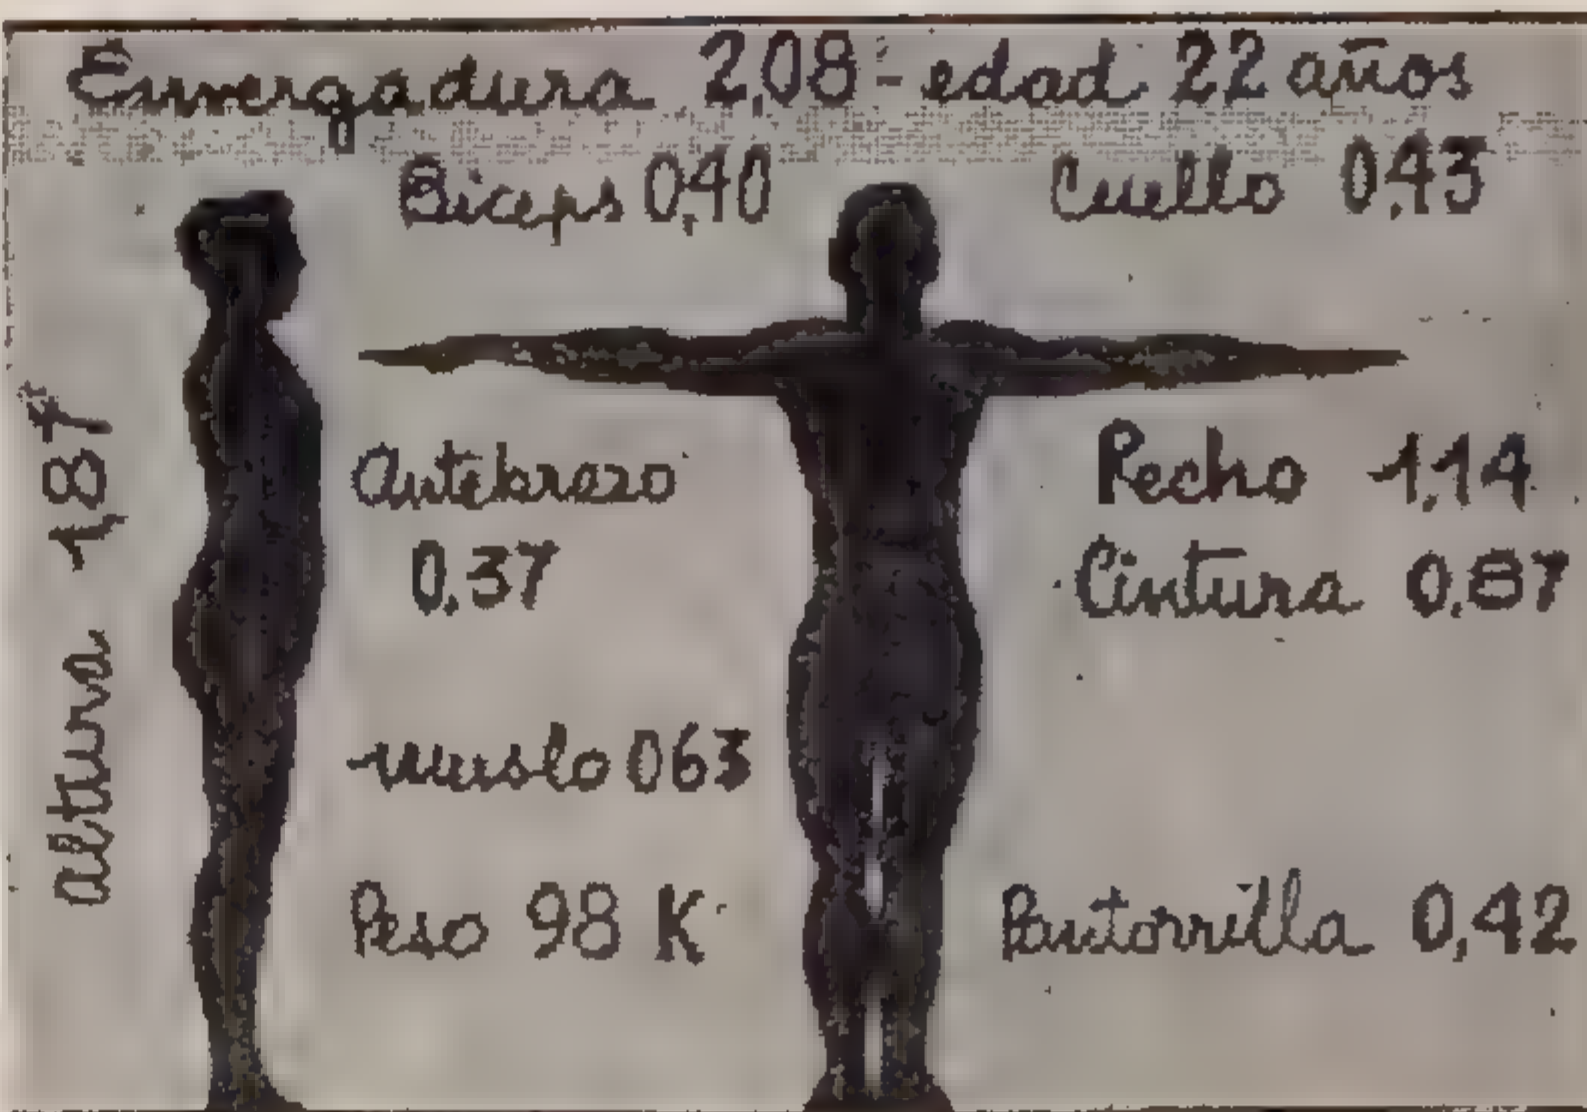 Envergadura 2,08 - edad 22 años
Biceps 0,40
Cuello 0,43
altura 1,87
Antebrazo
0,37
Pecho 1,14
Cintura 0,87
Muslo 063
Peso 98 K
Pantorrilla 0,42